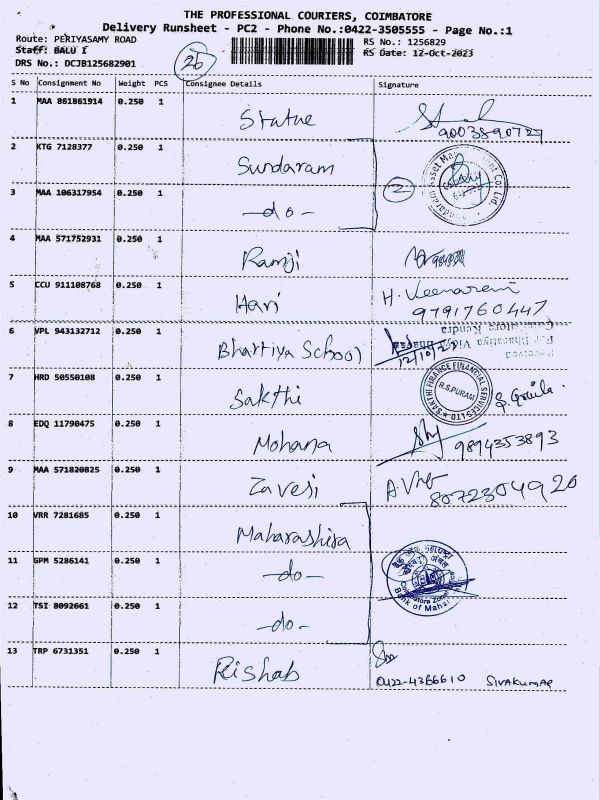 THE PROFESSIONAL COURIERS, COIMBATORE
Delivery Runsheet - PC2 - Phone No.:0422-3505555 - Page No.:1
Route: PERIYASAMY ROAD
RS No.: 1256829
Staff: BALU I
RS Date: 12-Oct-2023
DRS No.: DCJB125682901
26
S No Consignment No Weight PCS Consignee Details Signature
1 MAA 861861914 0.250 1 Statue
9003890727
2 KTG 7128377 0.250 1 Sundaram
2
3 MAA 106317954 0.250 1 -do-
4 MAA 571752931 0.250 1 Ramji
5 CCU 911108768 0.250 1 Hari H. Veenarani
9791760447
6 VPL 943132712 0.250 1 Bhartiya School
Received
Bharatiya Vidya Bhavan
Coimbatore Kendra
12/10/23
7 HRD 50550108 0.250 1 Sakthi
SAKTHI FINANCE FINANCIAL SERVICES LTD
R.S.PURAM
8 EDQ 11790475 0.250 1 Mohana
9894353893
9 MAA 571820825 0.250 1 Zaveri
8072304920
10 VRR 7281685 0.250 1 Maharashtra
11 GPM 5286141 0.250 1 -do-
Bank of Mahar
12 TSI 8092661 0.250 1 -do-
13 TRP 6731351 0.250 1 Rishab
0422-4366610 SIVAKUMAR